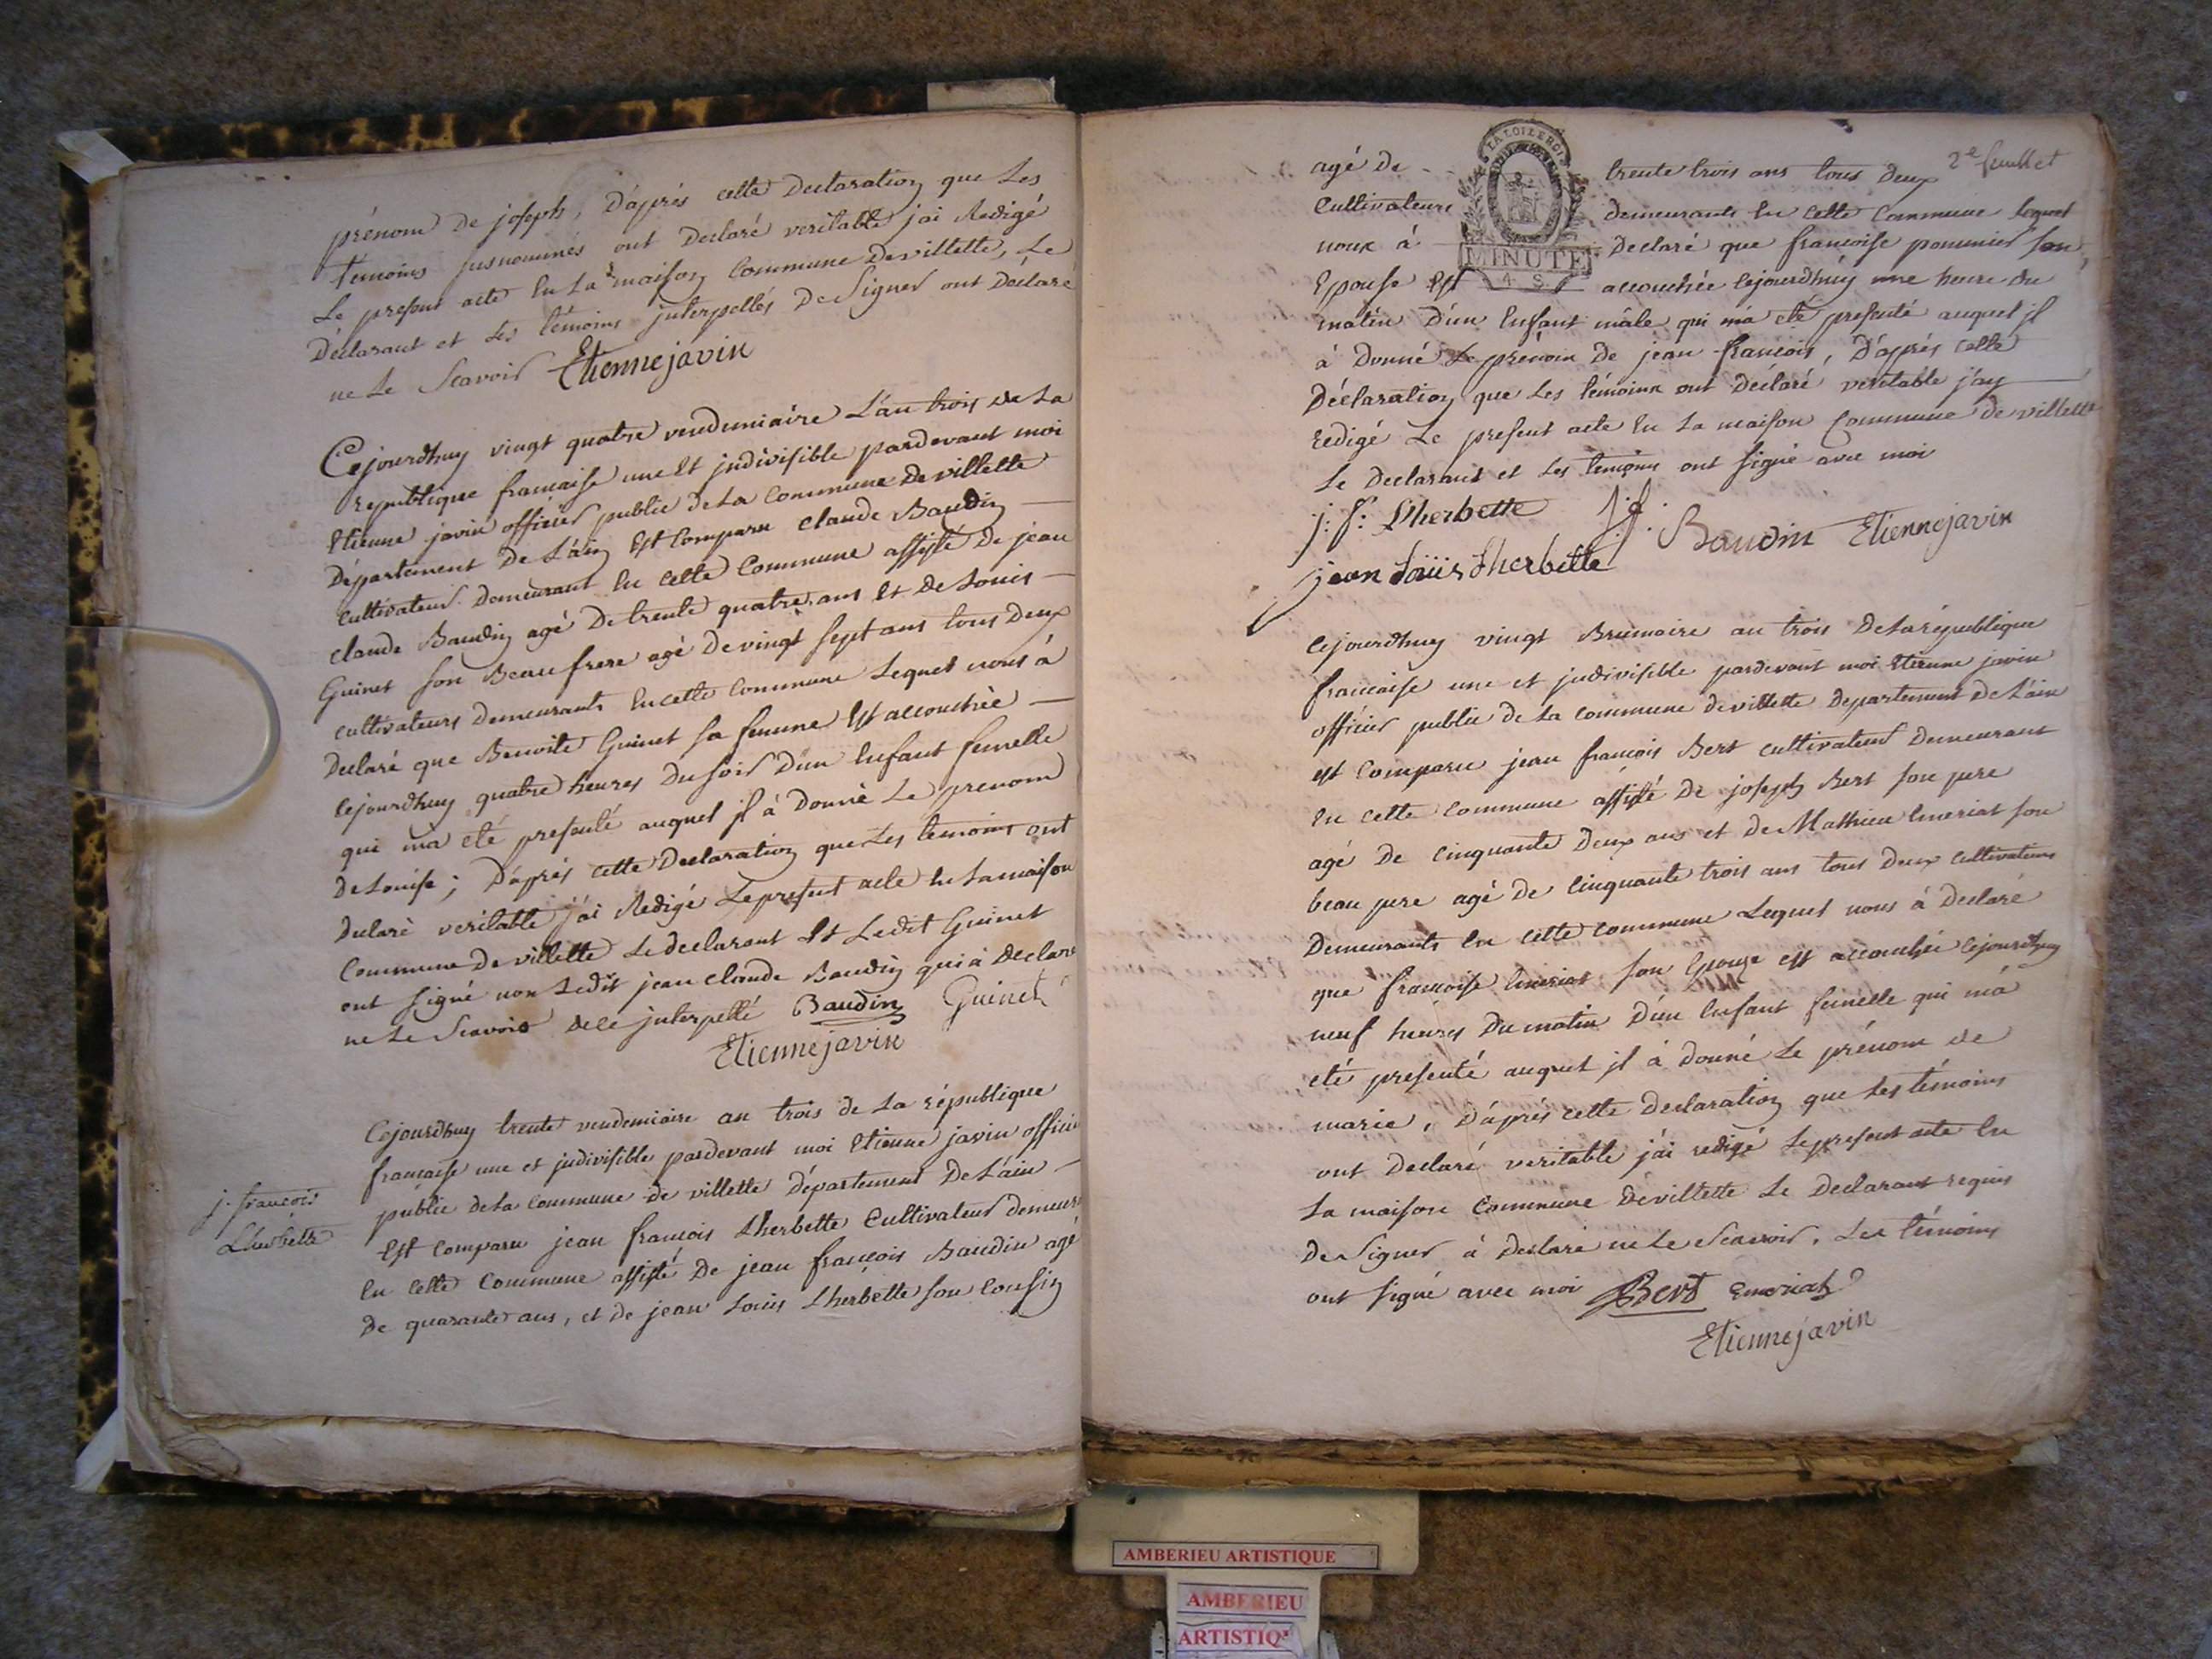 prénom de joseph, D'après cette Declaration que Les
témoins susnommés ont Declaré veritable j'ai Redigé
Le present acte en La maison Commune de villette, Le
Déclarant et Les témoins interpellés de Signer ont Déclaré
ne Le Scavoir Etienne javin
Cejourdhuy vingt quatre vendemiaire L'an trois de La
republique francaise une et indivisible pardevant moi
Etienne javin officier public de La Commune de villette
Département de L'ain Est Comparu claude Baudin
cultivateur Demeurant en cette Commune assisté de jean
claude Baudin agé De trente quatre ans et de Louis
Guinet son Beau frere agé de vingt sept ans tous deux
cultivateurs Demeurants en cette Commune Lequel nous à
Declaré que Benoite Guinet sa femme Est accouchée
cejourdhuy quatre heures du soir D'un Enfant femelle
qui m'a été presenté auquel il à Donné Le prenom
de Louise; D'après cette Declaration que Les temoins ont
declaré veritable j'ai Redigé Le present acte en La maison
Commune de villette Le declarant Et Ledit Guinet
ont signé non Ledit jean claude Baudin qui à Declaré
ne Le Scavoir de ce interpellé Baudin Guinet
Etienne javin
Cejourdhuy trente vendemiaire an trois de La république
francaise une et indivisible pardevant moi Etienne javin officier
public de La Commune de villette département De L'ain
j. francois
Lherbette
Est Comparu jean francois Lherbette Cultivateur demeur
En cette Commune assisté De jean francois Baudin agé
de quarante ans, et de jean Louis Lherbette son Cousin
2e feuillet
agé de trente trois ans tous deux
LA LOI LE ROI
Cultivateurs demeurants En cette Commune lequel
nous à Declaré que francoise pommier son
MINUTE
Epouse Est accouchée cejourdhuy une heure du
4. S.
matin D'un Enfant mâle qui m'a été presenté auquel il
à Donné Le prénom de jean francois, D'après cette
Déclaration que Les témoins ont Déclaré veritable j'ay
redigé Le present acte En La maison Commune de villette
Le Declarant et Les temoins ont signé avec moi
j: f: Lherbette j: f: Baudin Etienne javin
jean Loüis Lherbette
Cejourdhuy vingt Brumaire an trois De La république
francaise une et indivisible pardevant moi Etienne javin
officier public de La commune de villette Departement de L'ain
est Comparu jean françois Bert cultivateur Demeurant
En cette Commune assisté De joseph Bert son pere
agé De cinquante Deux ans et de Mathieu Emeriat son
beau pere agé de cinquante trois ans tous deux cultivateurs
Demeurants En cette commune Lequel nous à Declaré
que francoise Emeriat son Epouse est accouchée Cejourdhuy
neuf heures du matin D'un Enfant femelle qui m'a
été presenté auquel il à donné Le prénom de
marie, D'après cette Declaration que Les témoins
ont Declaré veritable j'ai redigé Le present acte En
La maison Commune de villette Le Declarant requis
de Signer à Declaré ne Le Scavoir. Les témoins
ont signé avec moi Bert Emeriat
Etienne javin
AMBERIEU ARTISTIQUE
AMBERIEU
ARTISTIQ